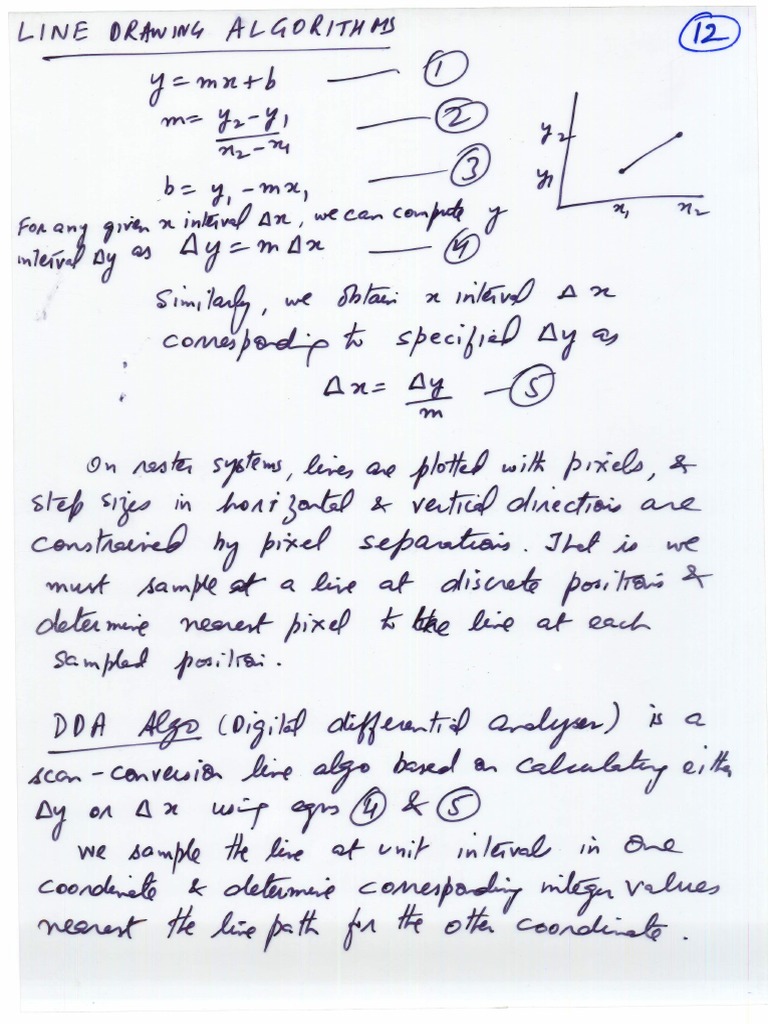 LINE DRAWING ALGORITHMS
12
y = mx + b — 1
m = y2 - y1 / x2 - x1 — 2
b = y1 - mx1 — 3
y2
y1
x1 x2
For any given x interval Δx, we can compute y
interval Δy as Δy = m Δx — 4
Similarly, we obtain x interval Δx
corresponding to specified Δy as
Δx = Δy / m — 5
On raster systems, lines are plotted with pixels, &
step sizes in horizontal & vertical directions are
constrained by pixel separations. That is we
must sample at a line at discrete positions &
determine nearest pixel to the line at each
sampled position.
DDA Algo (Digital differential analyser) is a
scan-conversion line algo based on calculating either
Δy or Δx using eqns 4 & 5
we sample the line at unit intervals in one
coordinate & determine corresponding integer values
nearest the line path for the other coordinate.